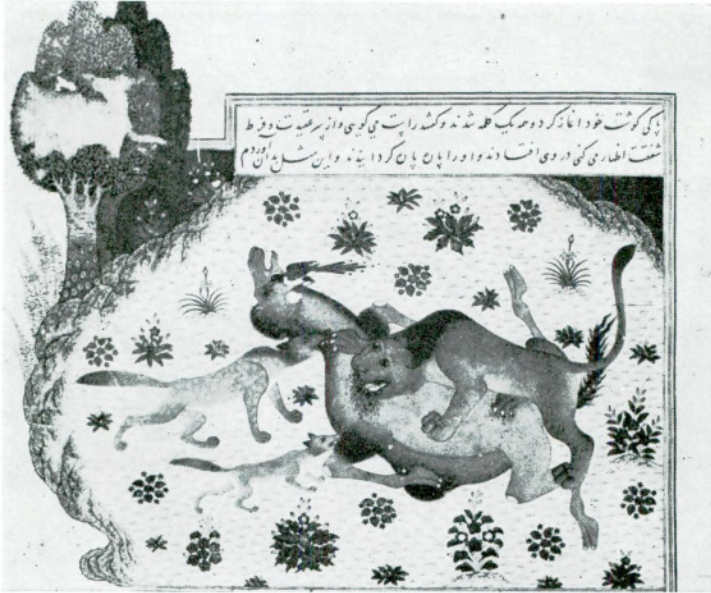 پاکی گوشت خود آغاز کرد و همه یک کلمه شدند و گفتند راست می گویی و از سر عقیدت و فرط
شفقت اظهار می کنی در وی افتادند و او را پاره پاره کردانیدند و این مثل بدان آوردم